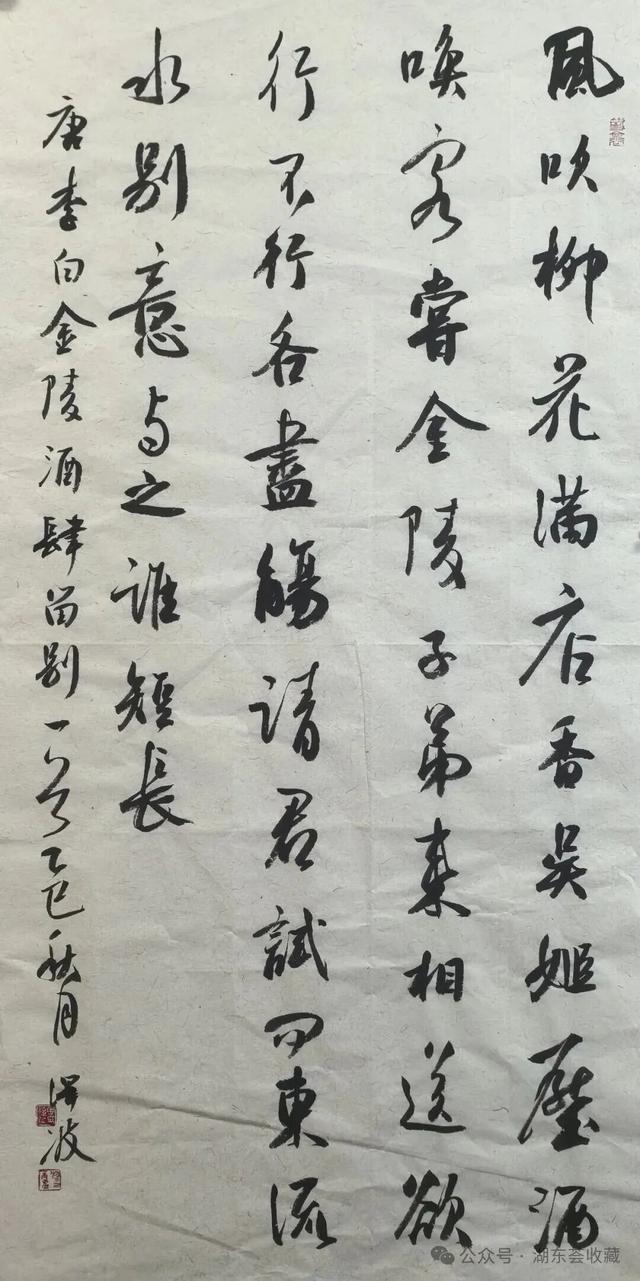 風吹柳花满店香吳姬壓酒
喚客嘗金陵子弟来相送欲
行不行各盡觴請君試问東流
水别意与之谁短長
唐李白金陵酒肆留别一首乙巳秋月
公众号·湖东荟收藏